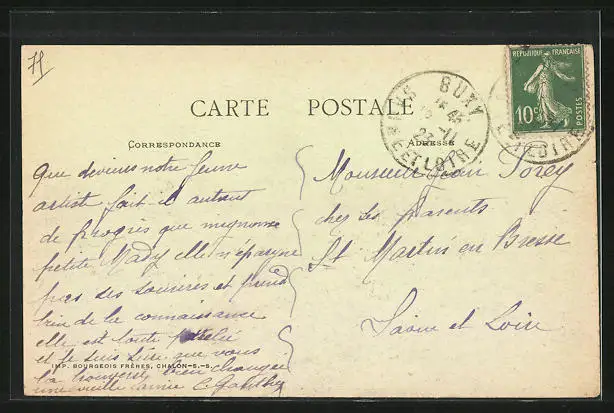 71
CARTE POSTALE
CORRESPONDANCE
ADRESSE
BUXY
SAÔNE ET LOIRE
REPUBLIQUE FRANÇAISE
10c
POSTES
ET LOIRE
que deviens notre jeune
artiste fait il autant
de progrès que mignonne
petite Mady elle n'épargne
pas ses sourires et prend
bien de la connaissance
elle est toute
et je suis sûre que vous
la trouverez bien changée
une vieille amie C.
Monsieur Jean
chez ses parents
St Martin en Bresse
Saone et Loire
IMP. BOURGEOIS FRÈRES, CHALON-S.-S.